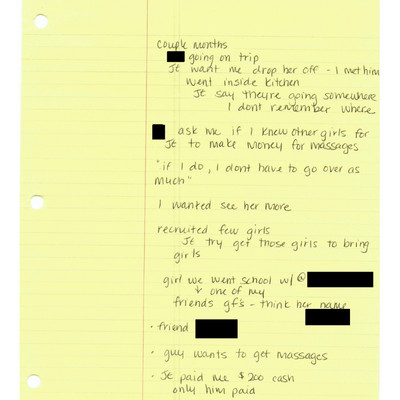 couple months
going on trip
JE want me drop her off - I met him
went inside kitchen
JE say they're going somewhere
I dont remember where
ask me if I knew other girls for
JE to make money for massages
"if I do, I dont have to go over as
much"
I wanted see her more
recruited few girls
JE try get those girls to bring
girls
girl we went school w/ @
↓ one of my
friends gf's - think her name
• friend
• guy wants to get massages
• JE paid me $200 cash
only him paid